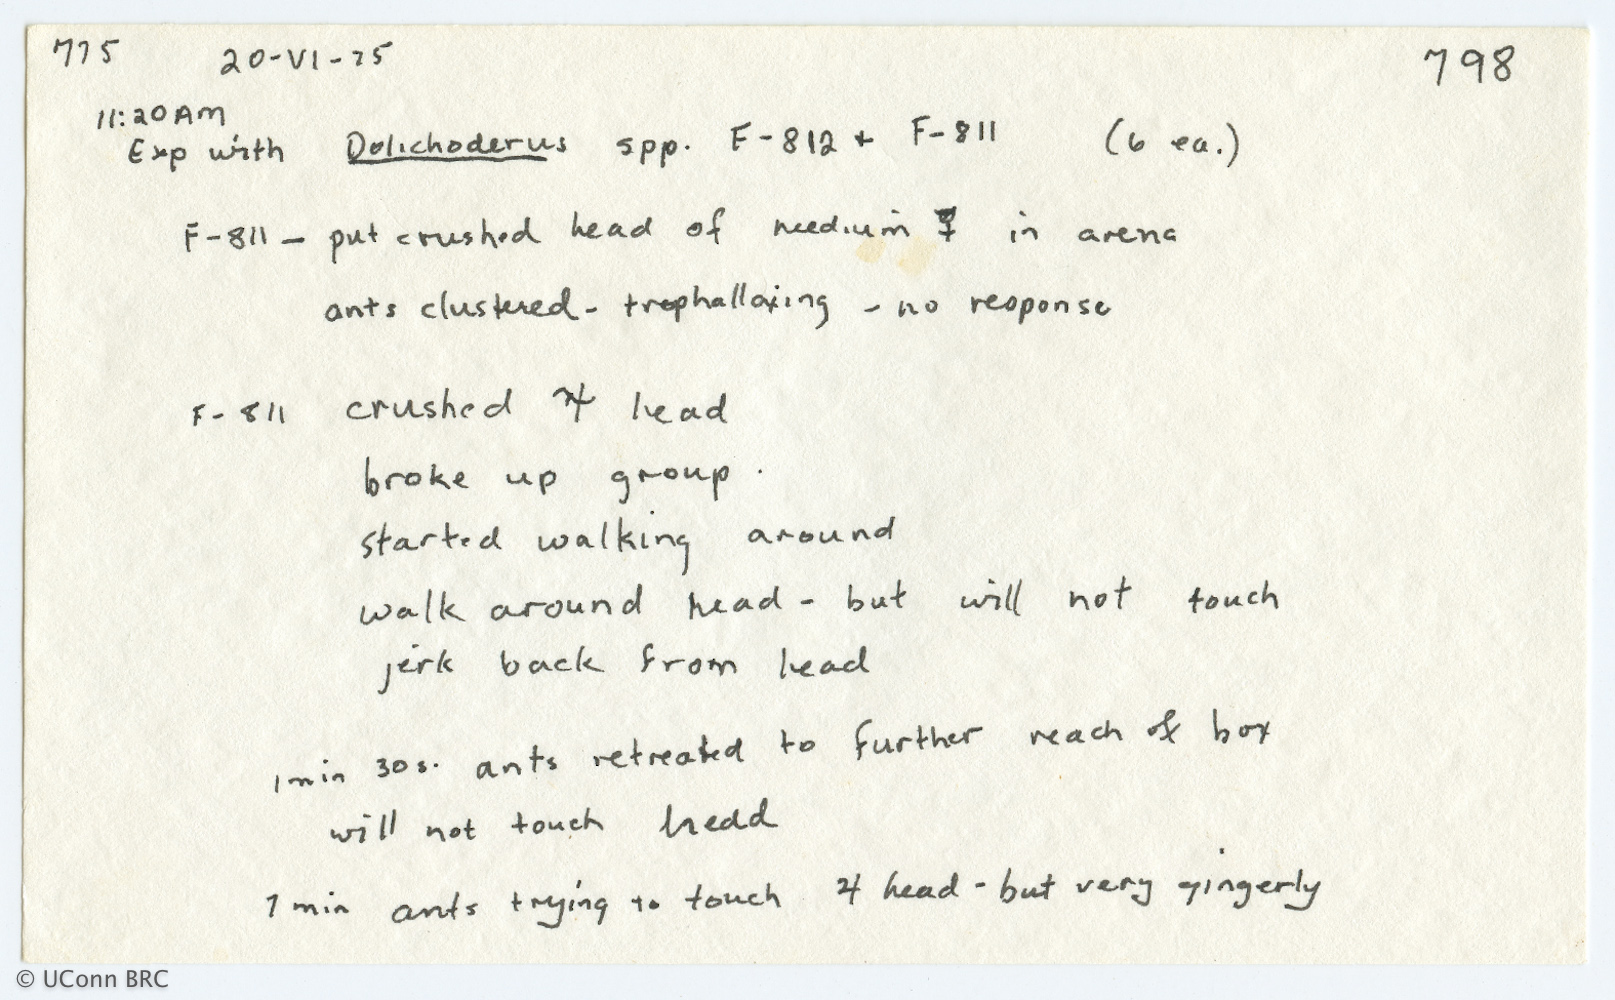 775 20-VI-75 798
11:20AM
Exp with Dolichoderus spp. F-812 + F-811 (6 ea.)
F-811 - put crushed head of medium in arena
ants clustered - trophallaxing - no response
F-811 crushed ♃ head
broke up group.
started walking around
walk around head - but will not touch
jerk back from head
1min 30s. ants retreated to further reach of box
will not touch head
7 min ants trying to touch ♃ head - but very gingerly
© UConn BRC